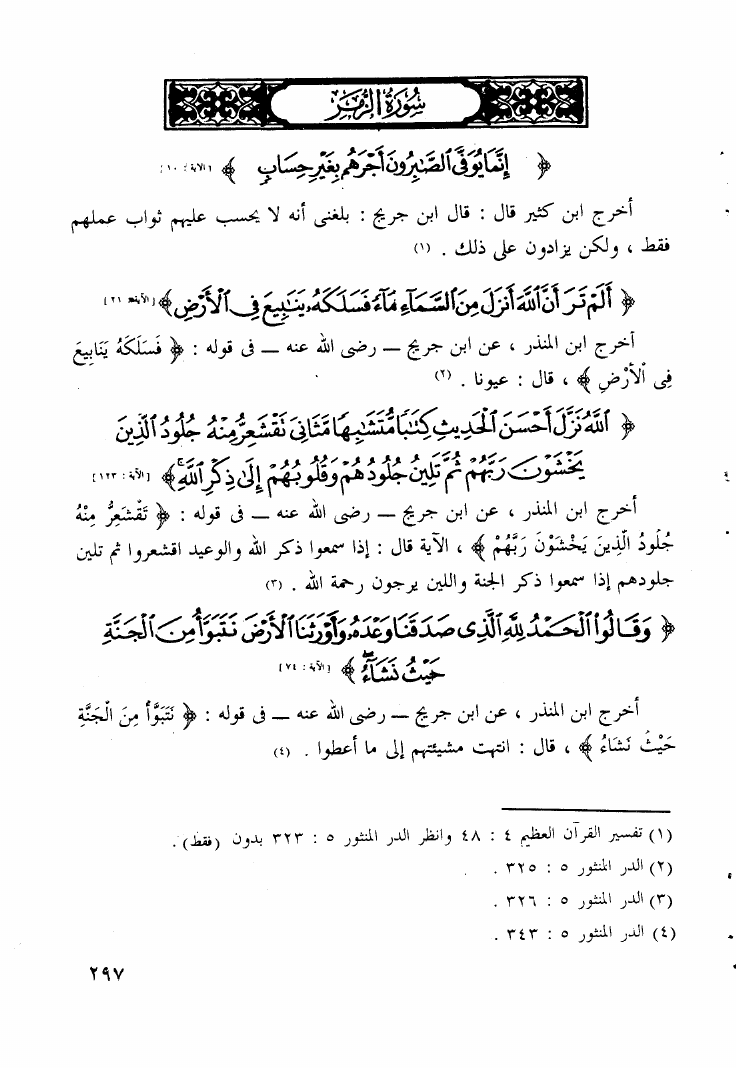 سُورَةُ الزُّمَر
﴿ إِنَّمَا يُوَفَّى ٱلصَّـٰبِرُونَ أَجْرَهُم بِغَيْرِ حِسَابٍ ﴾ [الآية : ١٠]
أخرج ابن كثير قال : قال ابن جريج : بلغنى أنه لا يحسب عليهم ثواب عملهم
فقط ، ولكن يزادون على ذلك . (١)
﴿ أَلَمْ تَرَ أَنَّ ٱللَّهَ أَنزَلَ مِنَ ٱلسَّمَآءِ مَآءً فَسَلَكَهُۥ يَنَـٰبِيعَ فِى ٱلْأَرْضِ ﴾ [الآية ٢١]
أخرج ابن المنذر ، عن ابن جريج ــ رضى الله عنه ــ فى قوله : ﴿ فَسَلَكَهُ يَنَابِيعَ
فِى ٱلْأَرْضِ ﴾ ، قال : عيونا . (٢)
﴿ ٱللَّهُ نَزَّلَ أَحْسَنَ ٱلْحَدِيثِ كِتَـٰبًا مُّتَشَـٰبِهًا مَّثَانِىَ تَقْشَعِرُّ مِنْهُ جُلُودُ ٱلَّذِينَ
يَخْشَوْنَ رَبَّهُمْ ثُمَّ تَلِينُ جُلُودُهُمْ وَقُلُوبُهُمْ إِلَىٰ ذِكْرِ ٱللَّهِ ﴾ [الآية : ١٢٣]
أخرج ابن المنذر ، عن ابن جريج ــ رضى الله عنه ــ فى قوله : ﴿ تَقْشَعِرُّ مِنْهُ
جُلُودُ الَّذِينَ يَخْشَوْنَ رَبَّهُمْ ﴾ ، الآية قال : إذا سمعوا ذكر الله والوعيد اقشعروا ثم تلين
جلودهم إذا سمعوا ذكر الجنة واللين يرجون رحمة الله . (٣)
﴿ وَقَالُوا۟ ٱلْحَمْدُ لِلَّهِ ٱلَّذِى صَدَقَنَا وَعْدَهُۥ وَأَوْرَثَنَا ٱلْأَرْضَ نَتَبَوَّأُ مِنَ ٱلْجَنَّةِ
حَيْثُ نَشَآءُ ﴾ [الآية : ٧٤]
أخرج ابن المنذر ، عن ابن جريج ــ رضى الله عنه ــ فى قوله : ﴿ نَتَبَوَّأُ مِنَ الْجَنَّةِ
حَيْثُ نَشَاءُ ﴾ ، قال : انتهت مشيئتهم إلى ما أعطوا . (٤)
(١) تفسير القرآن العظيم ٤ : ٤٨ وانظر الدر المنثور ٥ : ٣٢٣ بدون (فقط) .
(٢) الدر المنثور ٥ : ٣٢٥ .
(٣) الدر المنثور ٥ : ٣٢٦ .
(٤) الدر المنثور ٥ : ٣٤٣ .
٢٩٧